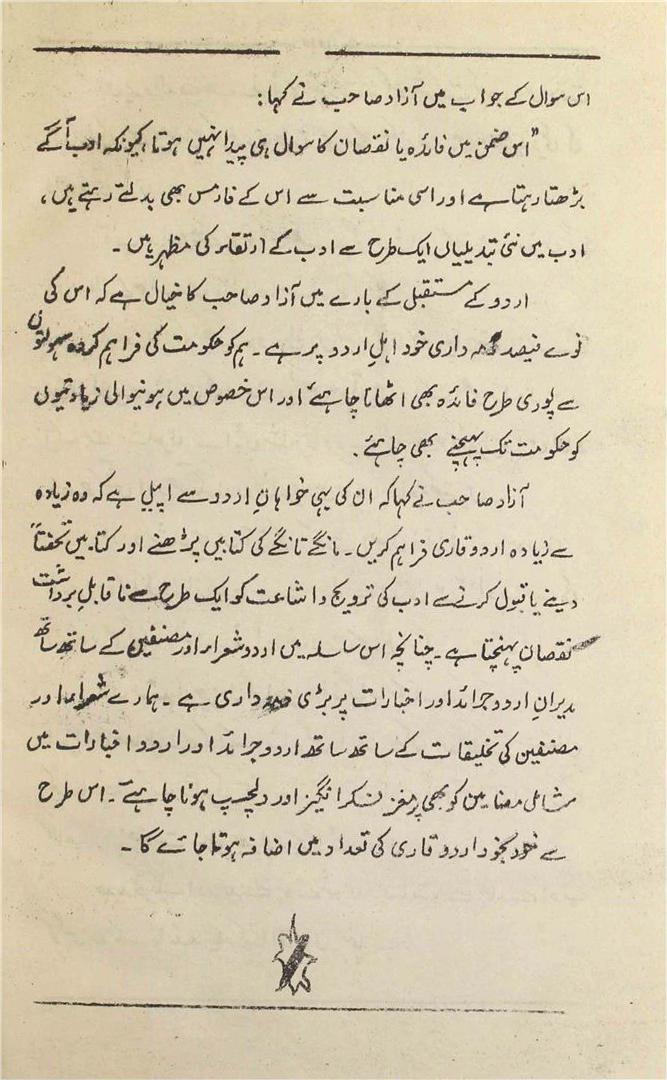 اس سوال کے جواب میں آزاد صاحب نے کہا:
"اس ضمن میں فائدہ یا نقصان کا سوال ہی پیدا نہیں ہوتا، کیونکہ ادب آگے
بڑھتا رہتا ہے اور اسی مناسبت سے اس کے فارمس بھی بدلتے رہتے ہیں،
ادب میں نئی تبدیلیاں ایک طرح سے ادب کے ارتقاء کی مظہر ہیں۔
اردو کے مستقبل کے بارے میں آزاد صاحب کا خیال ہے کہ اس کی
نوے فیصد ذمہ داری خود اہلِ اردو پر ہے۔ ہم کو حکومت کی فراہم کردہ سہولتوں
سے پوری طرح فائدہ بھی اٹھانا چاہیئے اور اس خصوص میں ہونیوالی زیادتیوں
کو حکومت تک پہنچنے بھی چاہئے۔
آزاد صاحب نے کہا کہ ان کی بہی خواہانِ اردو سے اپیل ہے کہ وہ زیادہ
سے زیادہ اردو قاری فراہم کریں۔ مانگے تانگے کی کتابیں پڑھنے اور کتابیں تحفتاً
دینے یا قبول کرنے سے ادب کی ترویج و اشاعت کو ایک طرح سے ناقابلِ برداشت
نقصان پہنچتا ہے۔ چنانچہ اس سلسلہ میں اردو شعراء اور مصنفین کے ساتھ ساتھ
مدیرانِ اردو جرائد اور اخبارات پر بڑی ذمہ داری ہے۔ ہمارے شعراء اور
مصنفین کی تخلیقات کے ساتھ ساتھ اردو جرائد اور اردو اخبارات میں
شامل مضامین کو بھی پرمغز فکر انگیز اور دلچسپ ہونا چاہیئے۔ اس طرح
سے خود بخود اردو قاری کی تعداد میں اضافہ ہوتا جائے گا۔